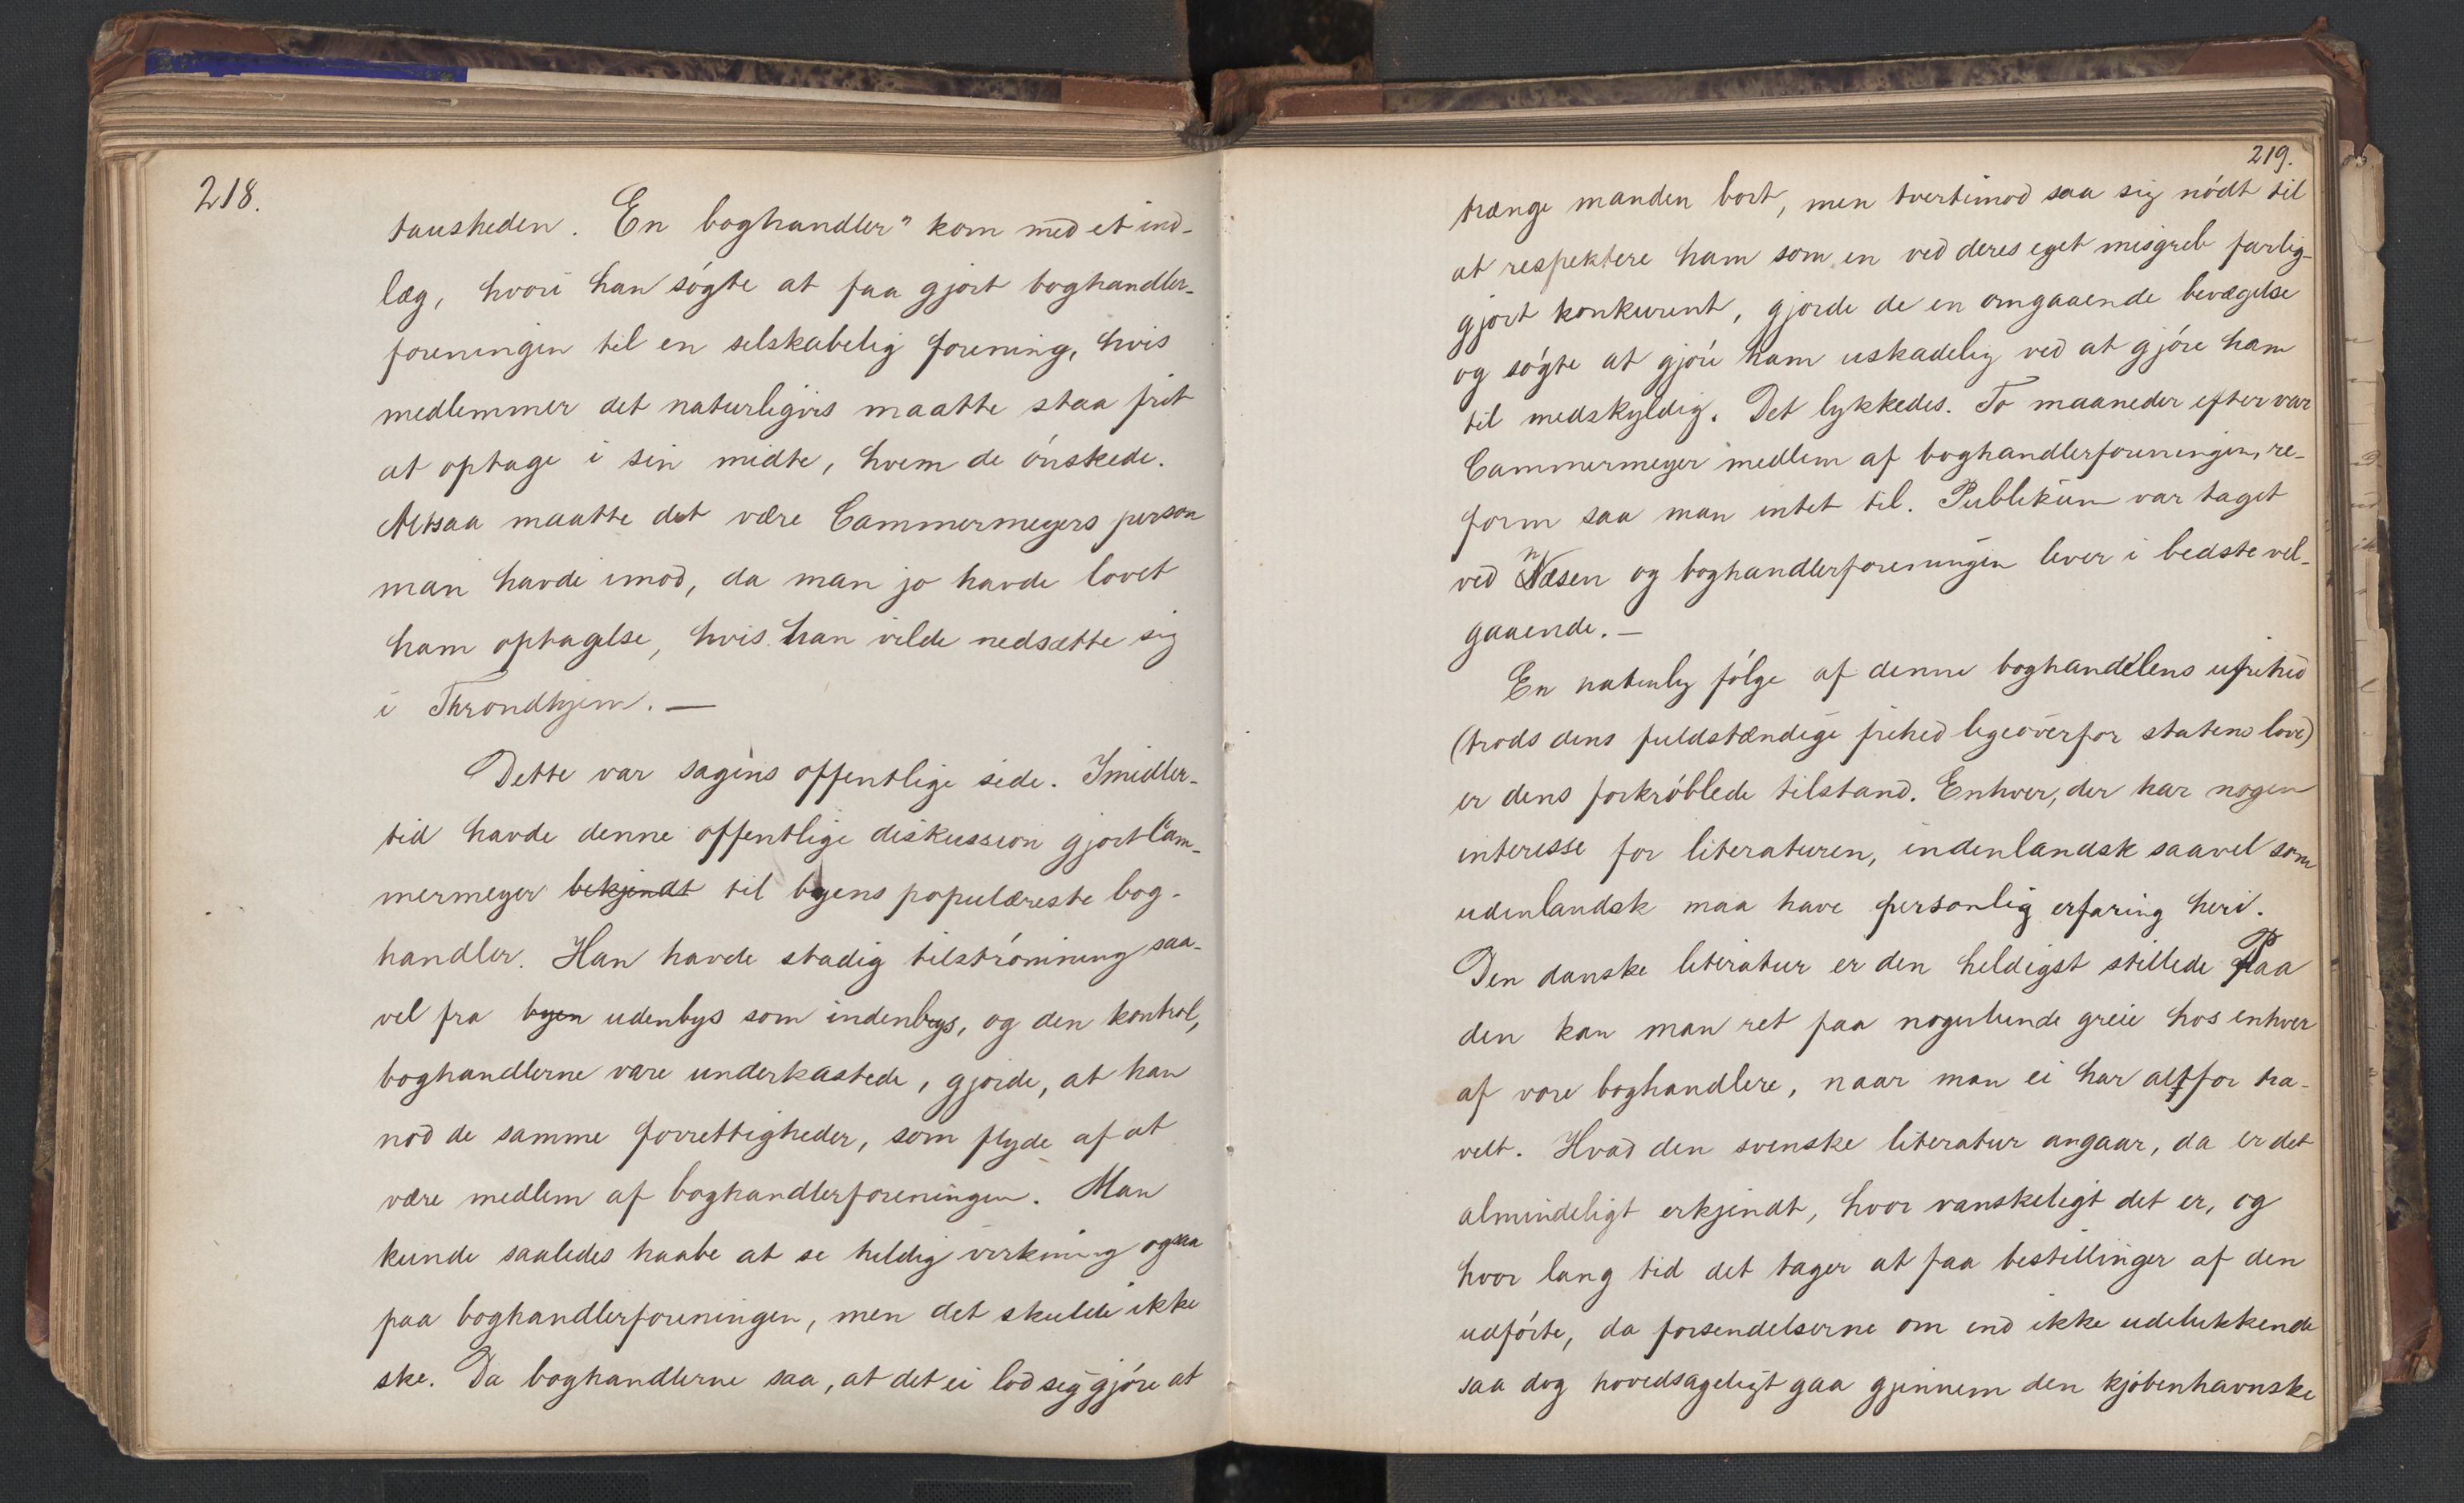 218.
tausheden. En boghandler" kom med et ind-
læg, hvori han søgte at faa gjort boghandler-
foreningen til en selskabelig forening, hvis
medlemmer det naturligvis maatte staa frit
at optage i sin midte, hvem de ønskede.
Altsaa maatte det være Cammermeyers person
man havde imod, da man jo havde lovet
ham optagelse, hvis han vilde nedsætte sig
i Throndhjem. —
Dette var sagens offentlige side. Imidler-
tid havde denne offentlige diskussion gjort Cam-
mermeyer bekjendt til byens populæreste bog-
handler. Han havde stadig tilstrømning saa-
vel fra byen udenbys som indenbys, og den kontrol,
boghandlerne vare underkastede, gjorde, at han
nød de samme forrettigheder, som flyde af at
være medlem af boghandlerforeningen. Man
kunde saaledes haabe at se heldig virkning ogsaa
paa boghandlerforeningen, men det skulde ikke
ske. Da boghandlerne saa, at det ei lod sig gjøre at
219.
trænge manden bort, men tvertimod saa sig nødt til
at respektere ham som en ved deres eget misgreb farlig-
gjort konkurent, gjorde de en omgaaende bevægelse
og søgte at gjøre ham uskadelig ved at gjøre ham
til medskyldig. Det lykkedes. To maaneder efter var
Cammermeyer medlem af boghandlerforeningen, re-
form saa man intet til. Publikum var taget
ved næsen og boghandlerforeningen lever i bedste vel-
gaaende. —
En naturlig følge af denne boghandelens ufrihed
(trods dens fuldstændige frihed ligeoverfor statens love)
er dens forkrøblede tilstand. Enhver, der har nogen
interesse for literaturen, indenlandsk saavel som
udenlandsk maa have personlig erfaring heri.
Den danske literatur er den heldigst stillede Paa
den kan man ret faa nogenlunde greie hos enhver
af vore boghandlere, naar man ei har altfor tra-
velt. Hvad den svenske literatur angaar, da er det
almindeligt erkjendt, hvor vanskeligt det er, og
hvor lang tid det tager at faa bestillinger af den
udførte, da forsendelserne om end ikke udelukkende
saa dog hovedsageligt gaa gjennem den kjøbenhavnske